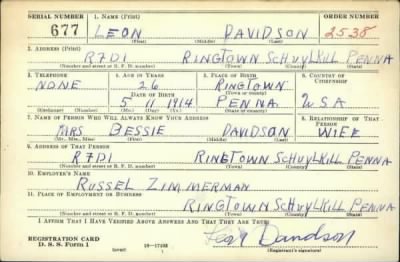 SERIAL NUMBER 1. NAME (Print) ORDER NUMBER
677 LEON DAVIDSON 2538
(First) (Middle) (Last)
2. ADDRESS (Print)
R7D1 RINGTOWN SCHUYLKILL PENNA
(Number and street or R. F. D. number) (Town) (County) (State)
3. TELEPHONE 4. AGE IN YEARS 5. PLACE OF BIRTH 6. COUNTRY OF CITIZENSHIP
NONE 26 RINGTOWN
DATE OF BIRTH (Town or county)
5 11 1914 PENNA USA
(Exchange) (Number) (Mo.) (Day) (Yr.) (State or country)
7. NAME OF PERSON WHO WILL ALWAYS KNOW YOUR ADDRESS 8. RELATIONSHIP OF THAT PERSON
MRS BESSIE DAVIDSON WIFE
(Mr., Mrs., Miss) (First) (Middle) (Last)
9. ADDRESS OF THAT PERSON
R7D1 RINGTOWN SCHUYLKILL PENNA
(Number and street or R. F. D. number) (Town) (County) (State)
10. EMPLOYER'S NAME
RUSSEL ZIMMERMAN
11. PLACE OF EMPLOYMENT OR BUSINESS
RINGTOWN SCHUYLKILL PENNA
(Number and street or R. F. D. number) (Town) (County) (State)
I AFFIRM THAT I HAVE VERIFIED ABOVE ANSWERS AND THAT THEY ARE TRUE.
REGISTRATION CARD Leon Davidson
D. S. S. Form 1 (over) 16-17105 (Registrant's signature)